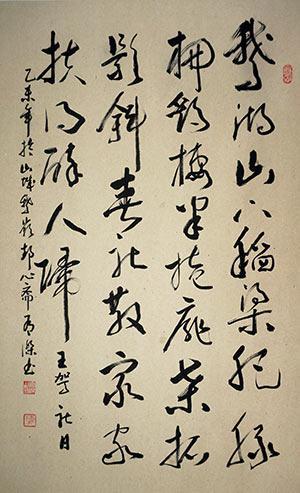 鵝湖山下稻粱肥豚
柵鷄棲半掩扉桑柘
影斜春社散家家
扶得醉人歸 王駕社日
乙未年於山城鵝嶺 心齋 書